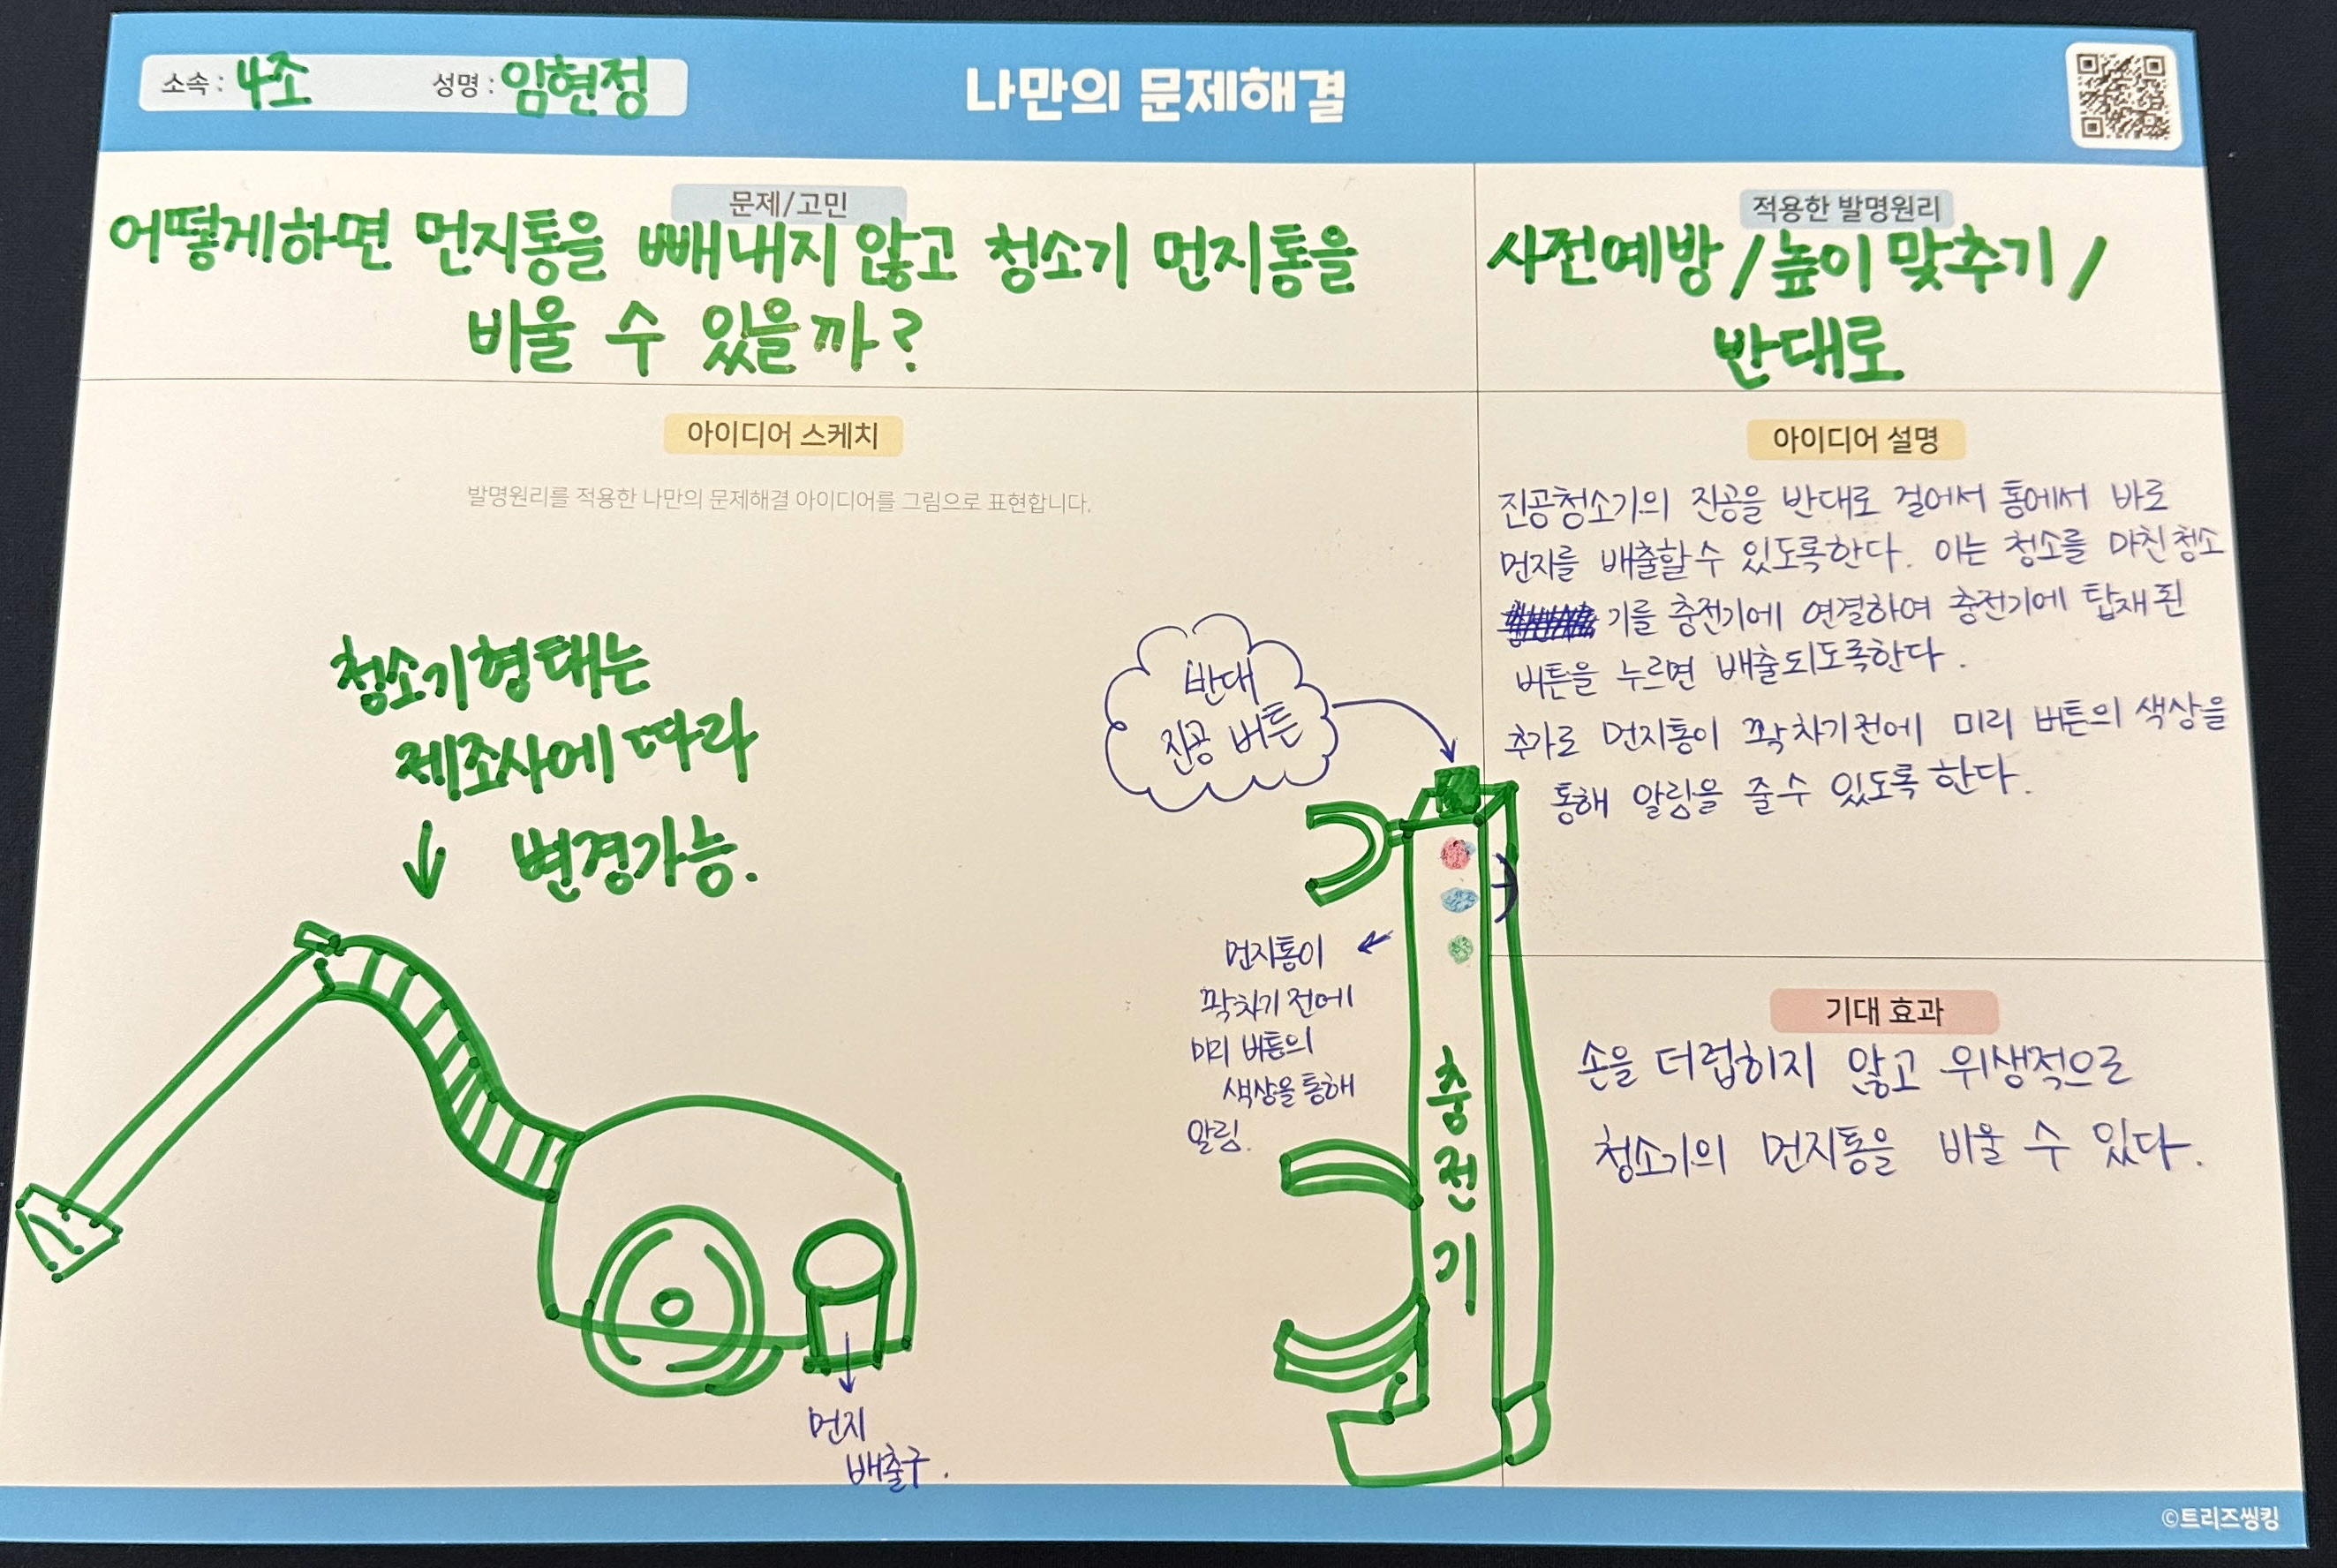 소속 : 4조 성명 : 임현정
나만의 문제해결
문제/고민
어떻게하면 먼지통을 빼내지 않고 청소기 먼지통을
비울 수 있을까?
적용한 발명원리
사전예방 / 높이 맞추기 /
반대로
아이디어 스케치
발명원리를 적용한 나만의 문제해결 아이디어를 그림으로 표현합니다.
청소기 형태는
제조사에 따라
변경가능.
반대
진공 버튼
먼지통이
꽉차기 전에
미리 버튼의
색상을 통해
알림.
충
전
기
먼지
배출구.
아이디어 설명
진공청소기의 진공을 반대로 걸어서 통에서 바로
먼지를 배출할 수 있도록한다. 이는 청소를 마친 청소
기를 충전기에 연결하여 충전기에 탑재된
버튼을 누르면 배출되도록한다.
추가로 먼지통이 꽉 차기전에 미리 버튼의 색상을
통해 알람을 줄 수 있도록 한다.
기대 효과
손을 더럽히지 않고 위생적으로
청소기의 먼지통을 비울 수 있다.
©트리즈씽킹